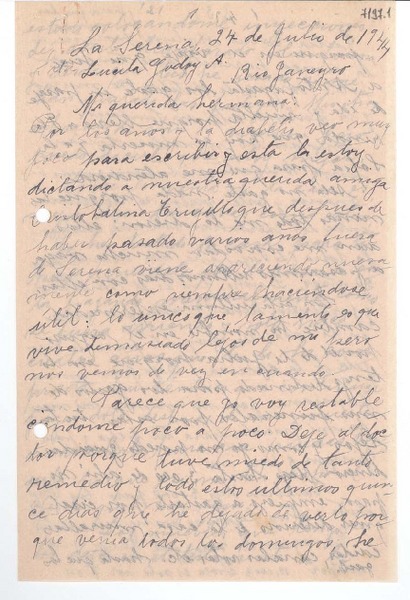 7197.1
La Serena, 24 de Julio de 1944
Lucila Godoy A. Rio Janeyro
Mi querida hermana:
Por los años y la diabetis veo muy
poco para escribir y esta la estoy
dictando a nuestra querida amiga
Trujillo que despues de
haber pasado varios años fuera
de Serena viene apareciendo nueva
mente como siempre haciendose
util: lo unico que lamento es que
vive demasiado lejos de mi pero
nos vemos de vez en cuando.
Parece que yo voy restable
ciendome poco a poco. Deje al doc
tor porque tuve miedo de tanto
remedio todo estos ultimos quin
ce dias que he dejado de verlo por
que venia todos los domingos, he